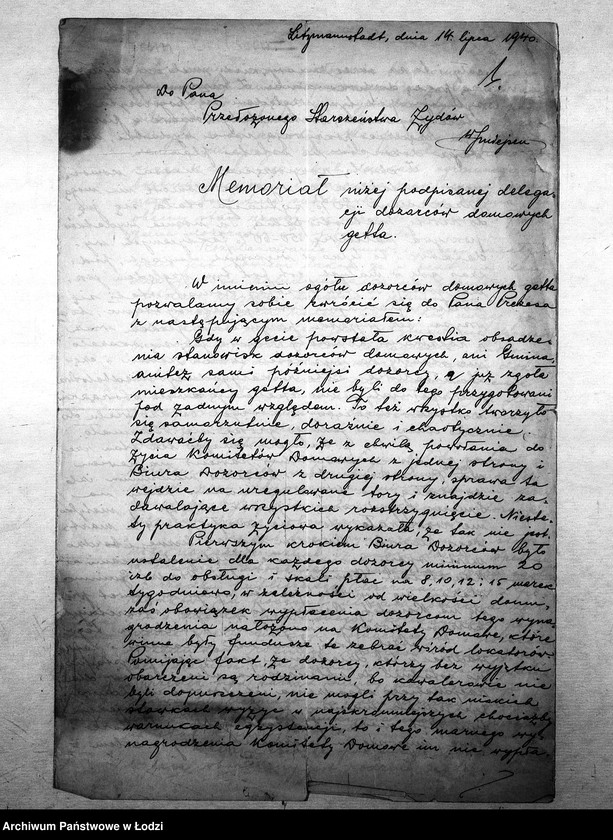 Litzmannstadt, dnia 14. lipca 1940.
1.
Do Pana
Przełożonego Starszeństwa Żydów
w/miejscu
Memoriał niżej podpisanej delega-
cji dozorców domowych
getta.
W imieniu ogółu dozorców domowych getta
pozwalamy sobie zwrócić się do Pana Prezesa
z następującym memoriałem:
Gdy w gecie powstała kwestia obsadze-
nia stanowisk dozorców domowych, ani Gmina,
anitez sami późniejsi dozorcy, a już zgoła
mieszkańcy getta, nie byli do tego przygotowani
pod żadnym względem. To też wszystko tworzyło
się samorzutnie, doraźnie i chaotycznie.
Zdawaćby się mogło, że z chwilą powołania do
życia Komitetów Domowych z jednej strony i
Biura Dozorców z drugiej strony, sprawa ta
wejdzie na uregulowane tory i znajdzie za-
dawalające wszystkich rozstrzygnięcie. Nieste-
ty praktyka życiowa wykazała, że tak nie jest.
Pierwszym krokiem Biura Dozorców było
ustalenie dla każdego dozorcy minimum 20
izb do obsługi i skali płac na 8, 10, 12 i 15 marek
tygodniowo, w zależności od wielkości domu,
zaś obowiązek wypłacenia dozorcom tego wyna-
grodzenia nałożono na Komitety Domowe, które
winne były fundusze te zebrać wśród lokatorów.
Pomijając fakt, że dozorcy, którzy bez wyjątku
obarczeni są rodzinami, bo kawalerowie nie
byli dopuszczeni, nie mogli przy tak niskich
stawkach wyżyć w najskromniejszych chociażby
warunkach egzystencji, to i tego marnego wy-
nagrodzenia Komitety Domowe im nie wypła-
Archiwum Państwowe w Łodzi